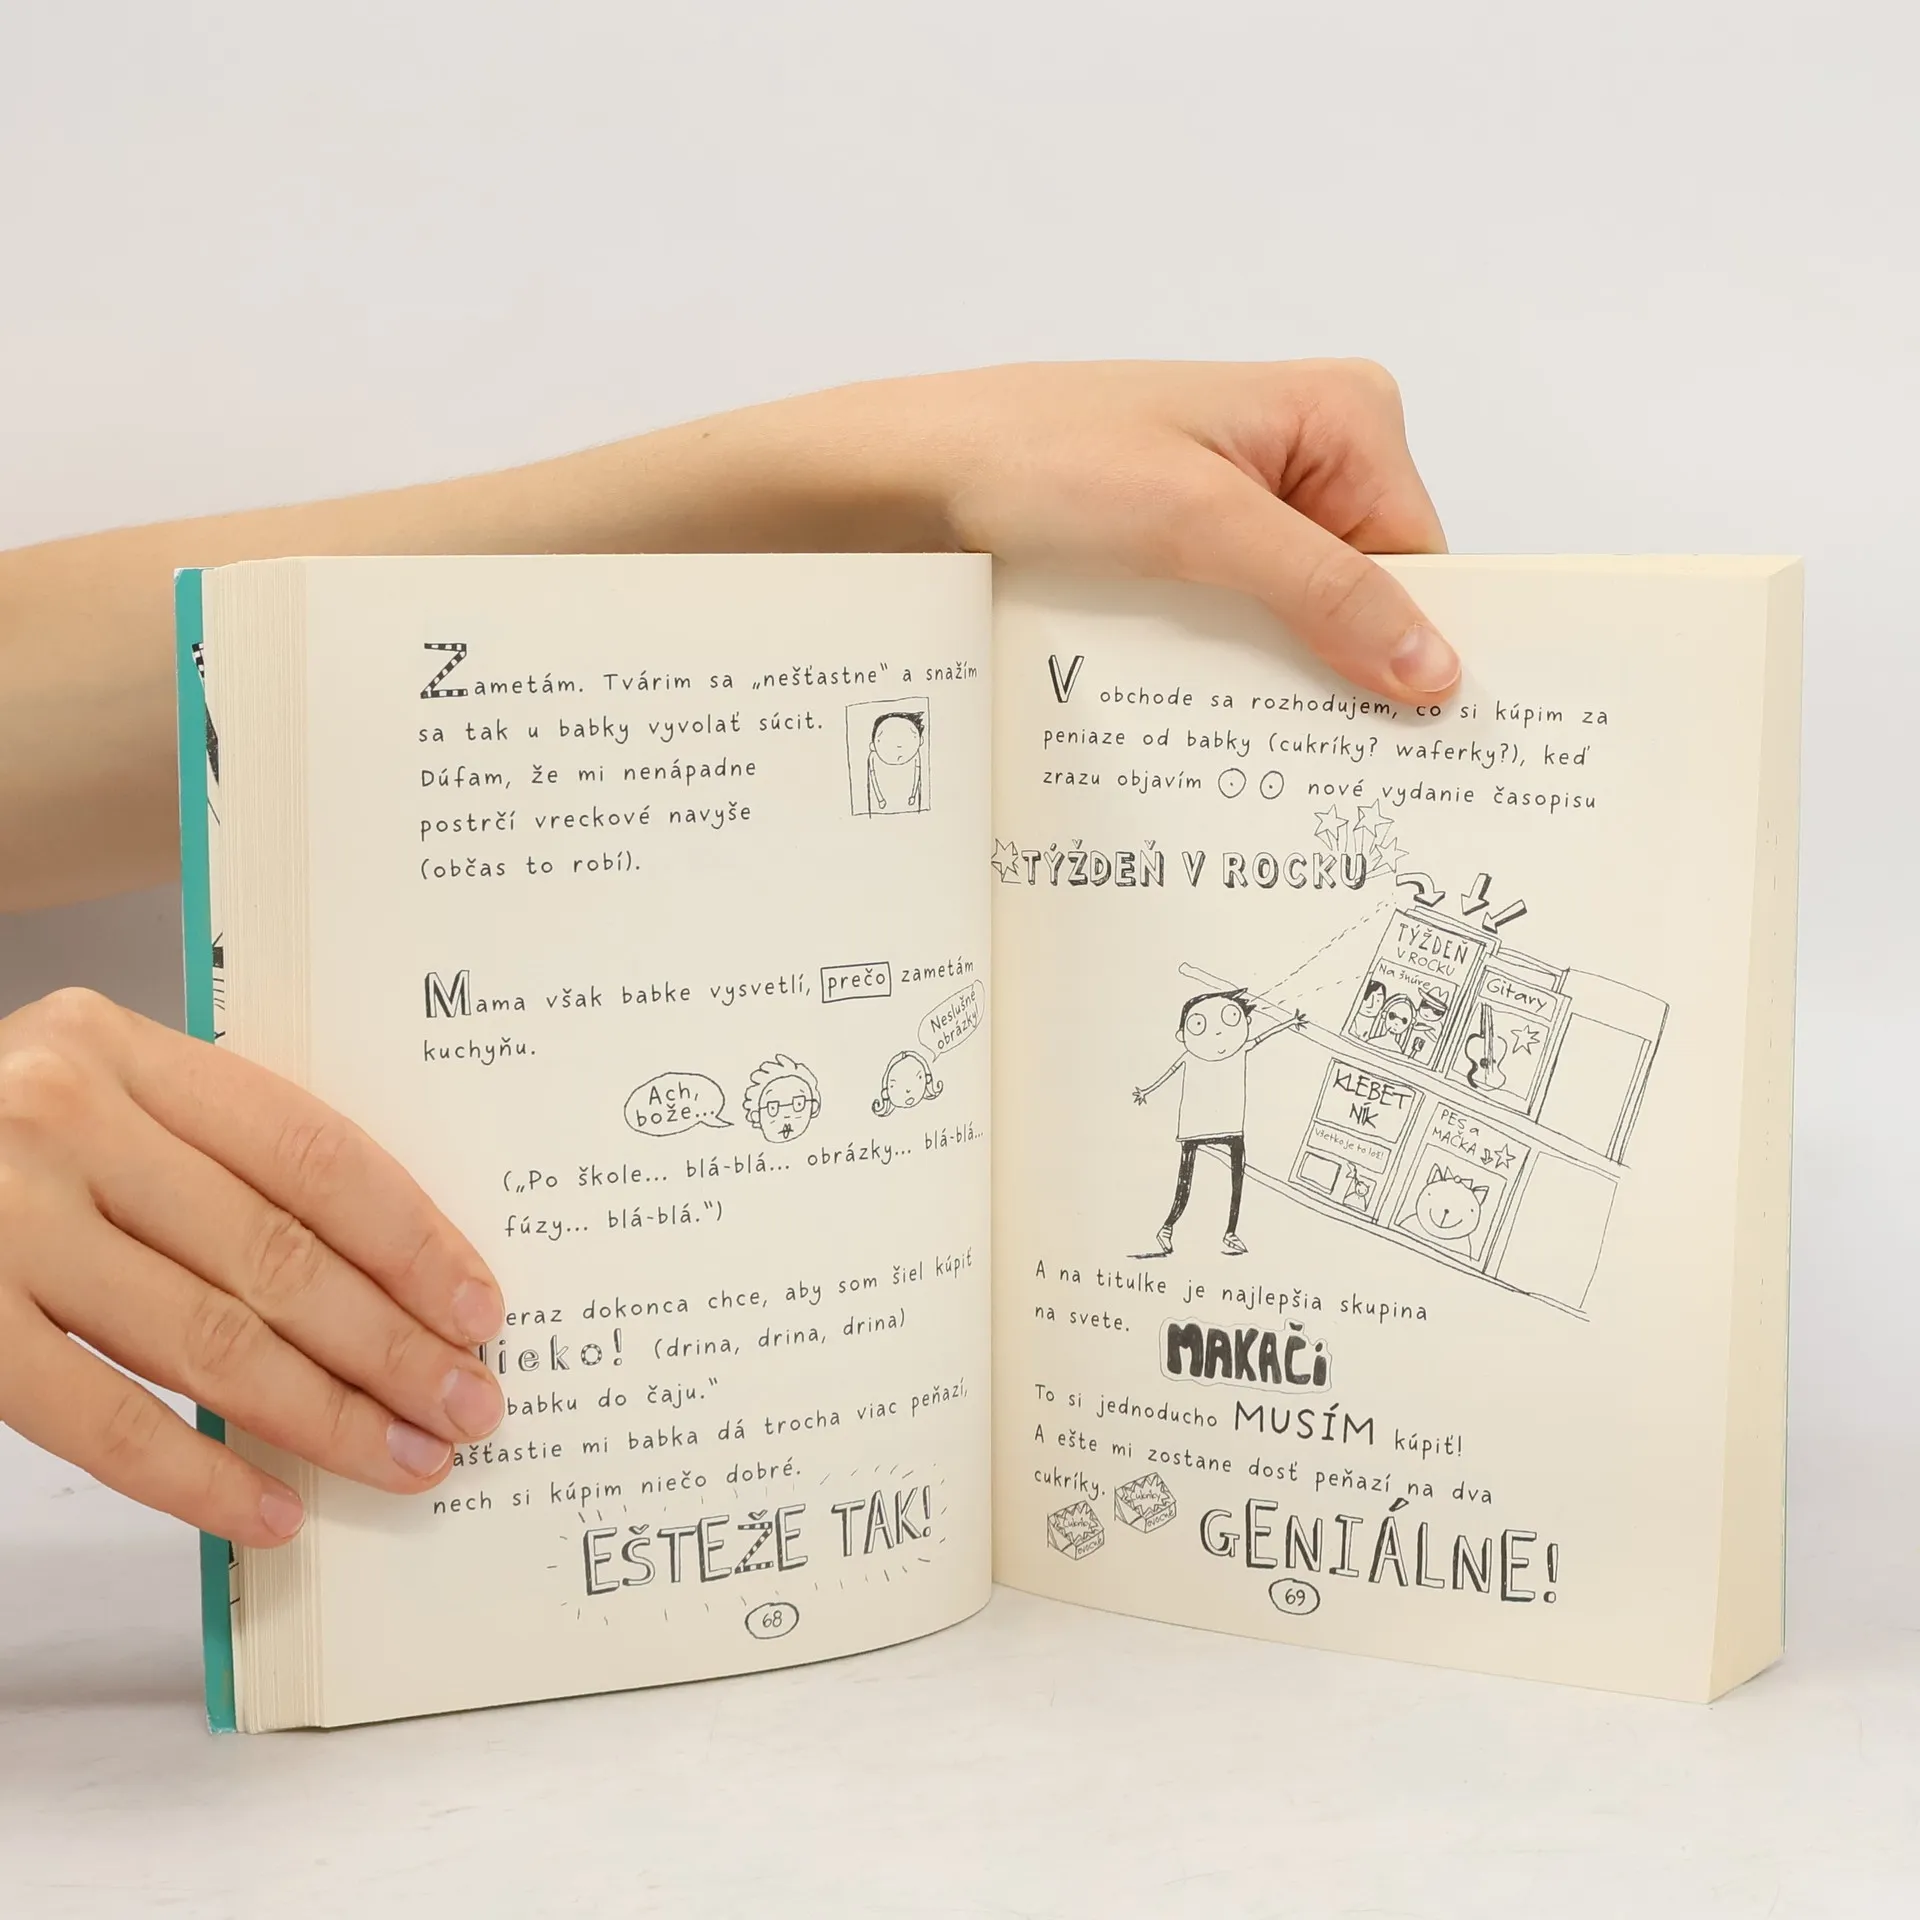 Zametám. Tvárim sa „nešťastne" a snažím
sa tak u babky vyvolať súcit.
Dúfam, že mi nenápadne
postrčí vreckové navyše
(občas to robí).
Mama však babke vysvetlí, prečo zametám
kuchyňu.
Neslušné
obrázky!
Ach,
bože...
(„Po škole... blá-blá... obrázky... blá-blá...
fúzy... blá-blá.")
eraz dokonca chce, aby som šiel kúpiť
lieko! (drina, drina, drina)
babku do čaju."
ašťastie mi babka dá trocha viac peňazí,
nech si kúpim niečo dobré.
EŠTEŽE TAK!
68
V obchode sa rozhodujem, čo si kúpim za
peniaze od babky (cukríky? waferky?), keď
zrazu objavím nové vydanie časopisu
TÝŽDEŇ V ROCKU
TÝŽDEŇ
V ROCKU
Na šnúre
Gitary
KLEBET
NÍK
všetko je to lož!
PES a
MAČKA
A na titulke je najlepšia skupina
na svete.
MAKAČi
To si jednoducho MUSÍM kúpiť!
A ešte mi zostane dosť peňazí na dva
cukríky.
Cukríky
OVOCNÉ
Cukríky
OVOCNÉ
GENIÁLNE!
69